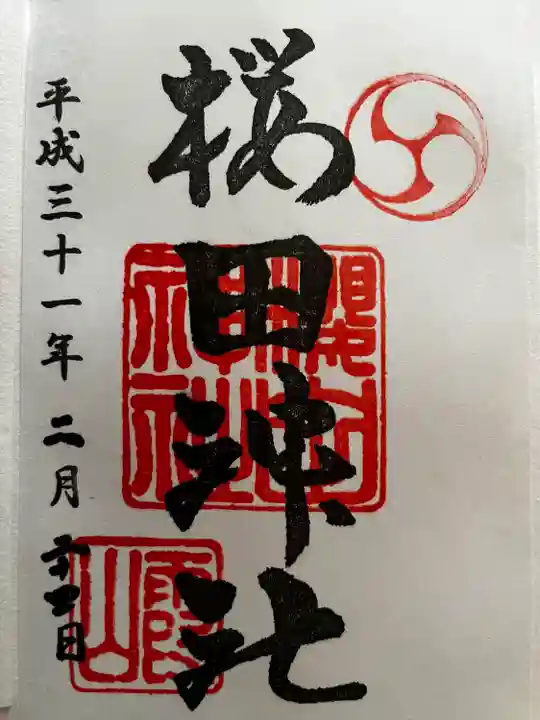 桜田神社
平成三十一年 二月 二十四日
霞山